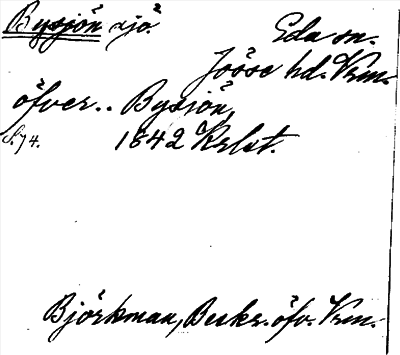 Bysjön sjö. Eda sn.
Jösse hd. Vrm.
öfver.. Bysjön,
S. 74. 1842 Krlst.
Björkman, Beskr. öfv. Vrm.